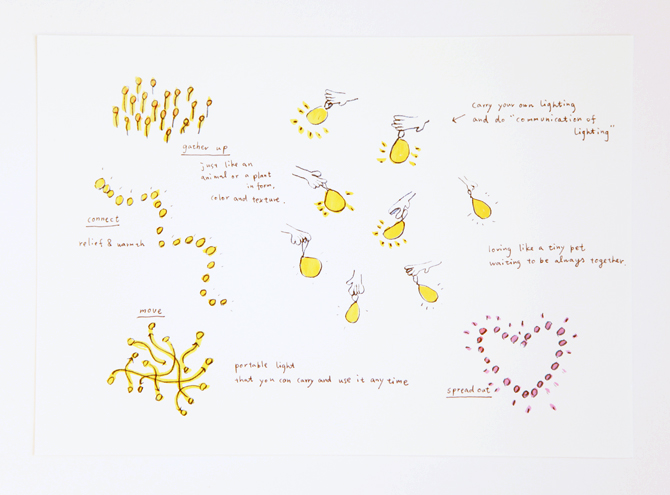 gather up
just like an
animal or a plant
in form,
color and texture.
connect
relief & warmth
move
portable light
that you can carry and use it any time
carry your own lighting
and do "communication of
lighting"
loving like a tiny pet
waiting to be always together
spread out